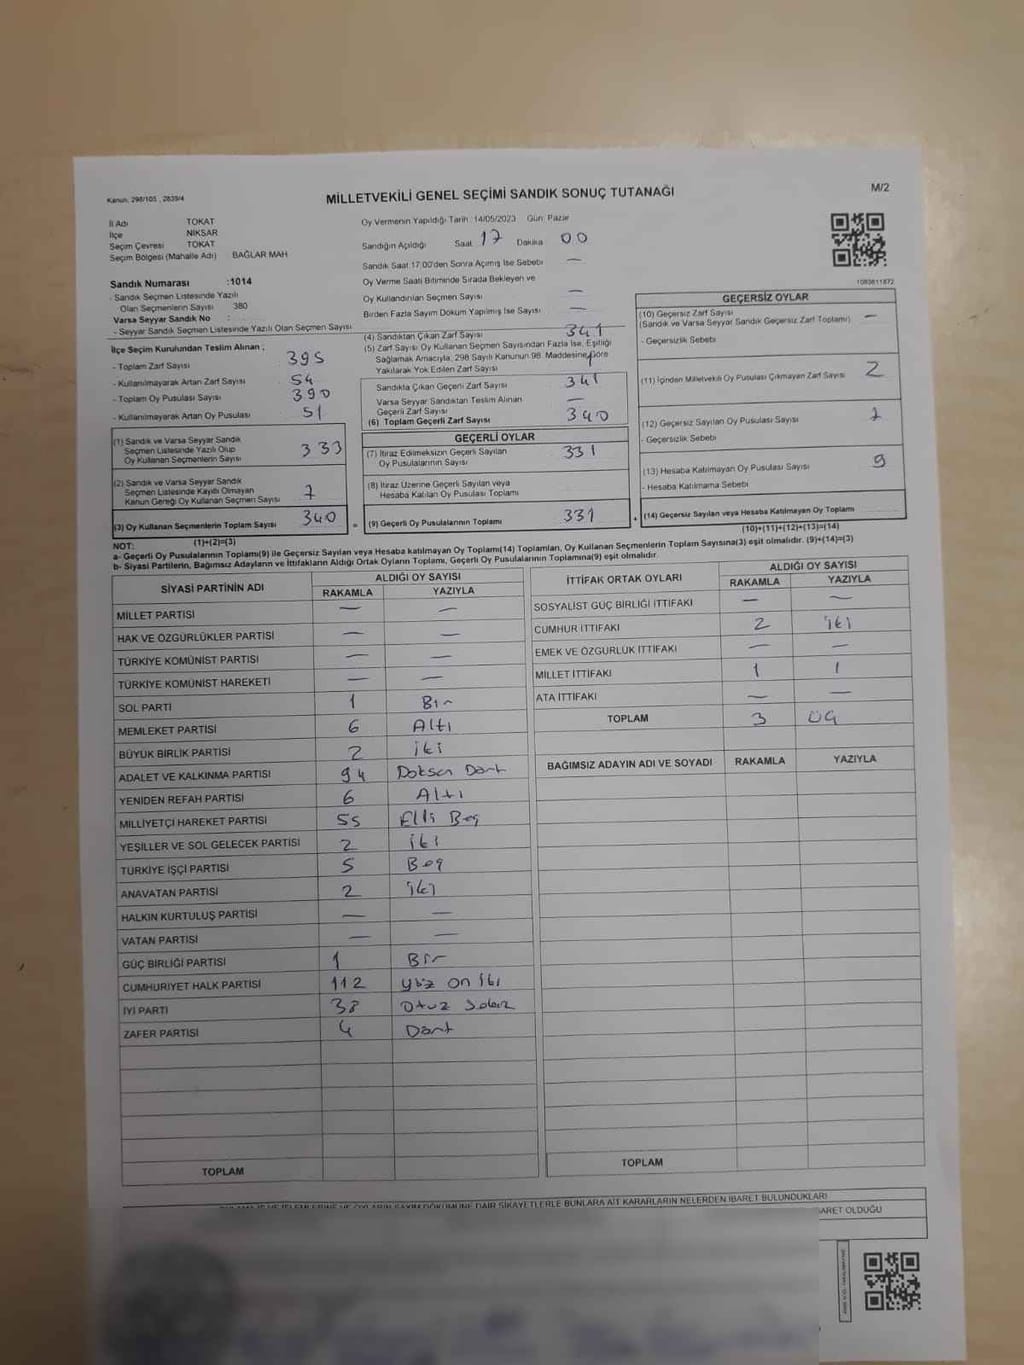 Kanun: 298/105 , 2839/4
MİLLETVEKİLİ GENEL SEÇİMİ SANDIK SONUÇ TUTANAĞI
M/2
İl Adı TOKAT
İlçe NİKSAR
Seçim Çevresi TOKAT
Seçim Bölgesi (Mahalle Adı) BAĞLAR MAH
Oy Vermenin Yapıldığı Tarih :14/05/2023 Gün: Pazar
Sandığın Açıldığı Saat 17 Dakika 00
Sandık Saat 17:00'den Sonra Açımış İse Sebebi —
Oy Verme Saati Bitiminde Sırada Bekleyen ve
Oy Kullandırılan Seçmen Sayısı —
Birden Fazla Sayım Döküm Yapılmış İse Sayısı —
Sandık Numarası :1014
- Sandık Seçmen Listesinde Yazılı
Olan Seçmenlerin Sayısı 380
Varsa Seyyar Sandık No :
- Seyyar Sandık Seçmen Listesinde Yazılı Olan Seçmen Sayısı
İlçe Seçim Kurulundan Teslim Alınan ;
- Toplam Zarf Sayısı 395
- Kullanılmayarak Artan Zarf Sayısı 54
- Toplam Oy Pusulası Sayısı 390
- Kullanılmayarak Artan Oy Pusulası 51
(1) Sandık ve Varsa Seyyar Sandık
Seçmen Listesinde Yazılı Olup
Oy Kullanan Seçmenlerin Sayısı 333
(2) Sandık ve Varsa Seyyar Sandık
Seçmen Listesinde Kayıtlı Olmayan
Kanun Gereği Oy Kullanan Seçmen Sayısı 7
(3) Oy Kullanan Seçmenlerin Toplam Sayısı 340
(1)+(2)=(3)
(4) Sandıktan Çıkan Zarf Sayısı 341
(5) Zarf Sayısı Oy Kullanan Seçmen Sayısından Fazla İse, Eşitliği
Sağlamak Amacıyla, 298 Sayılı Kanunun 98. Maddesine Göre
Yakılarak Yok Edilen Zarf Sayısı 1
Sandıkta Çıkan Geçerli Zarf Sayısı 341
Varsa Seyyar Sandıktan Teslim Alınan
Geçerli Zarf Sayısı —
(6) Toplam Geçerli Zarf Sayısı 340
GEÇERLİ OYLAR
(7) İtiraz Edilmeksizin Geçerli Sayılan
Oy Pusulalarının Sayısı 331
(8) İtiraz Üzerine Geçerli Sayılan veya
Hesaba Katılan Oy Pusulası Toplamı
= (9) Geçerli Oy Pusulalarının Toplamı 331
1083811872
GEÇERSİZ OYLAR
(10) Geçersiz Zarf Sayısı
(Sandık ve Varsa Seyyar Sandık Geçersiz Zarf Toplamı) —
- Geçersizlik Sebebi
(11) İçinden Milletvekili Oy Pusulası Çıkmayan Zarf Sayısı 2
(12) Geçersiz Sayılan Oy Pusulası Sayısı 7
- Geçersizlik Sebebi
(13) Hesaba Katılmayan Oy Pusulası Sayısı 9
- Hesaba Katılmama Sebebi
+ (14) Geçersiz Sayılan veya Hesaba Katılmayan Oy Toplamı
(10)+(11)+(12)+(13)=(14)
NOT:
a- Geçerli Oy Pusulalarının Toplamı(9) ile Geçersiz Sayılan veya Hesaba katılmayan Oy Toplamı(14) Toplamları, Oy Kullanan Seçmenlerin Toplam Sayısına(3) eşit olmalıdır. (9)+(14)=(3)
b- Siyasi Partilerin, Bağımsız Adayların ve İttifakların Aldığı Oyların Toplamı, Geçerli Oy Pusulalarının Toplamına(9) eşit olmalıdır.
SİYASİ PARTİNİN ADI ALDIĞI OY SAYISI
RAKAMLA YAZIYLA
MİLLET PARTİSİ — —
HAK VE ÖZGÜRLÜKLER PARTİSİ — —
TÜRKİYE KOMÜNİST PARTİSİ — —
TÜRKİYE KOMÜNİST HAREKETİ — —
SOL PARTİ 1 Bir
MEMLEKET PARTİSİ 6 Altı
BÜYÜK BİRLİK PARTİSİ 2 iki
ADALET VE KALKINMA PARTİSİ 94 Doksan Dört
YENİDEN REFAH PARTİSİ 6 Altı
MİLLİYETÇİ HAREKET PARTİSİ 55 Elli Beş
YEŞİLLER VE SOL GELECEK PARTİSİ 2 iki
TÜRKİYE İŞÇİ PARTİSİ 5 Beş
ANAVATAN PARTİSİ 2 iki
HALKIN KURTULUŞ PARTİSİ — —
VATAN PARTİSİ — —
GÜÇ BİRLİĞİ PARTİSİ 1 Bir
CUMHURİYET HALK PARTİSİ 112 yüz on iki
İYİ PARTİ 38 Otuz Sekiz
ZAFER PARTİSİ 4 Dört
TOPLAM
İTTİFAK ORTAK OYLARI ALDIĞI OY SAYISI
RAKAMLA YAZIYLA
SOSYALİST GÜÇ BİRLİĞİ İTTİFAKI — —
CUMHUR İTTİFAKI 2 iki
EMEK VE ÖZGÜRLÜK İTTİFAKI — —
MİLLET İTTİFAKI 1 1
ATA İTTİFAKI — —
TOPLAM 3 üç
BAĞIMSIZ ADAYIN ADI VE SOYADI RAKAMLA YAZIYLA
TOPLAM
DÖKÜMÜNE DAİR ŞİKAYETLERLE BUNLARA AİT KARARLARIN NELERDEN İBARET BULUNDUKLARI
İBARET OLDUĞU